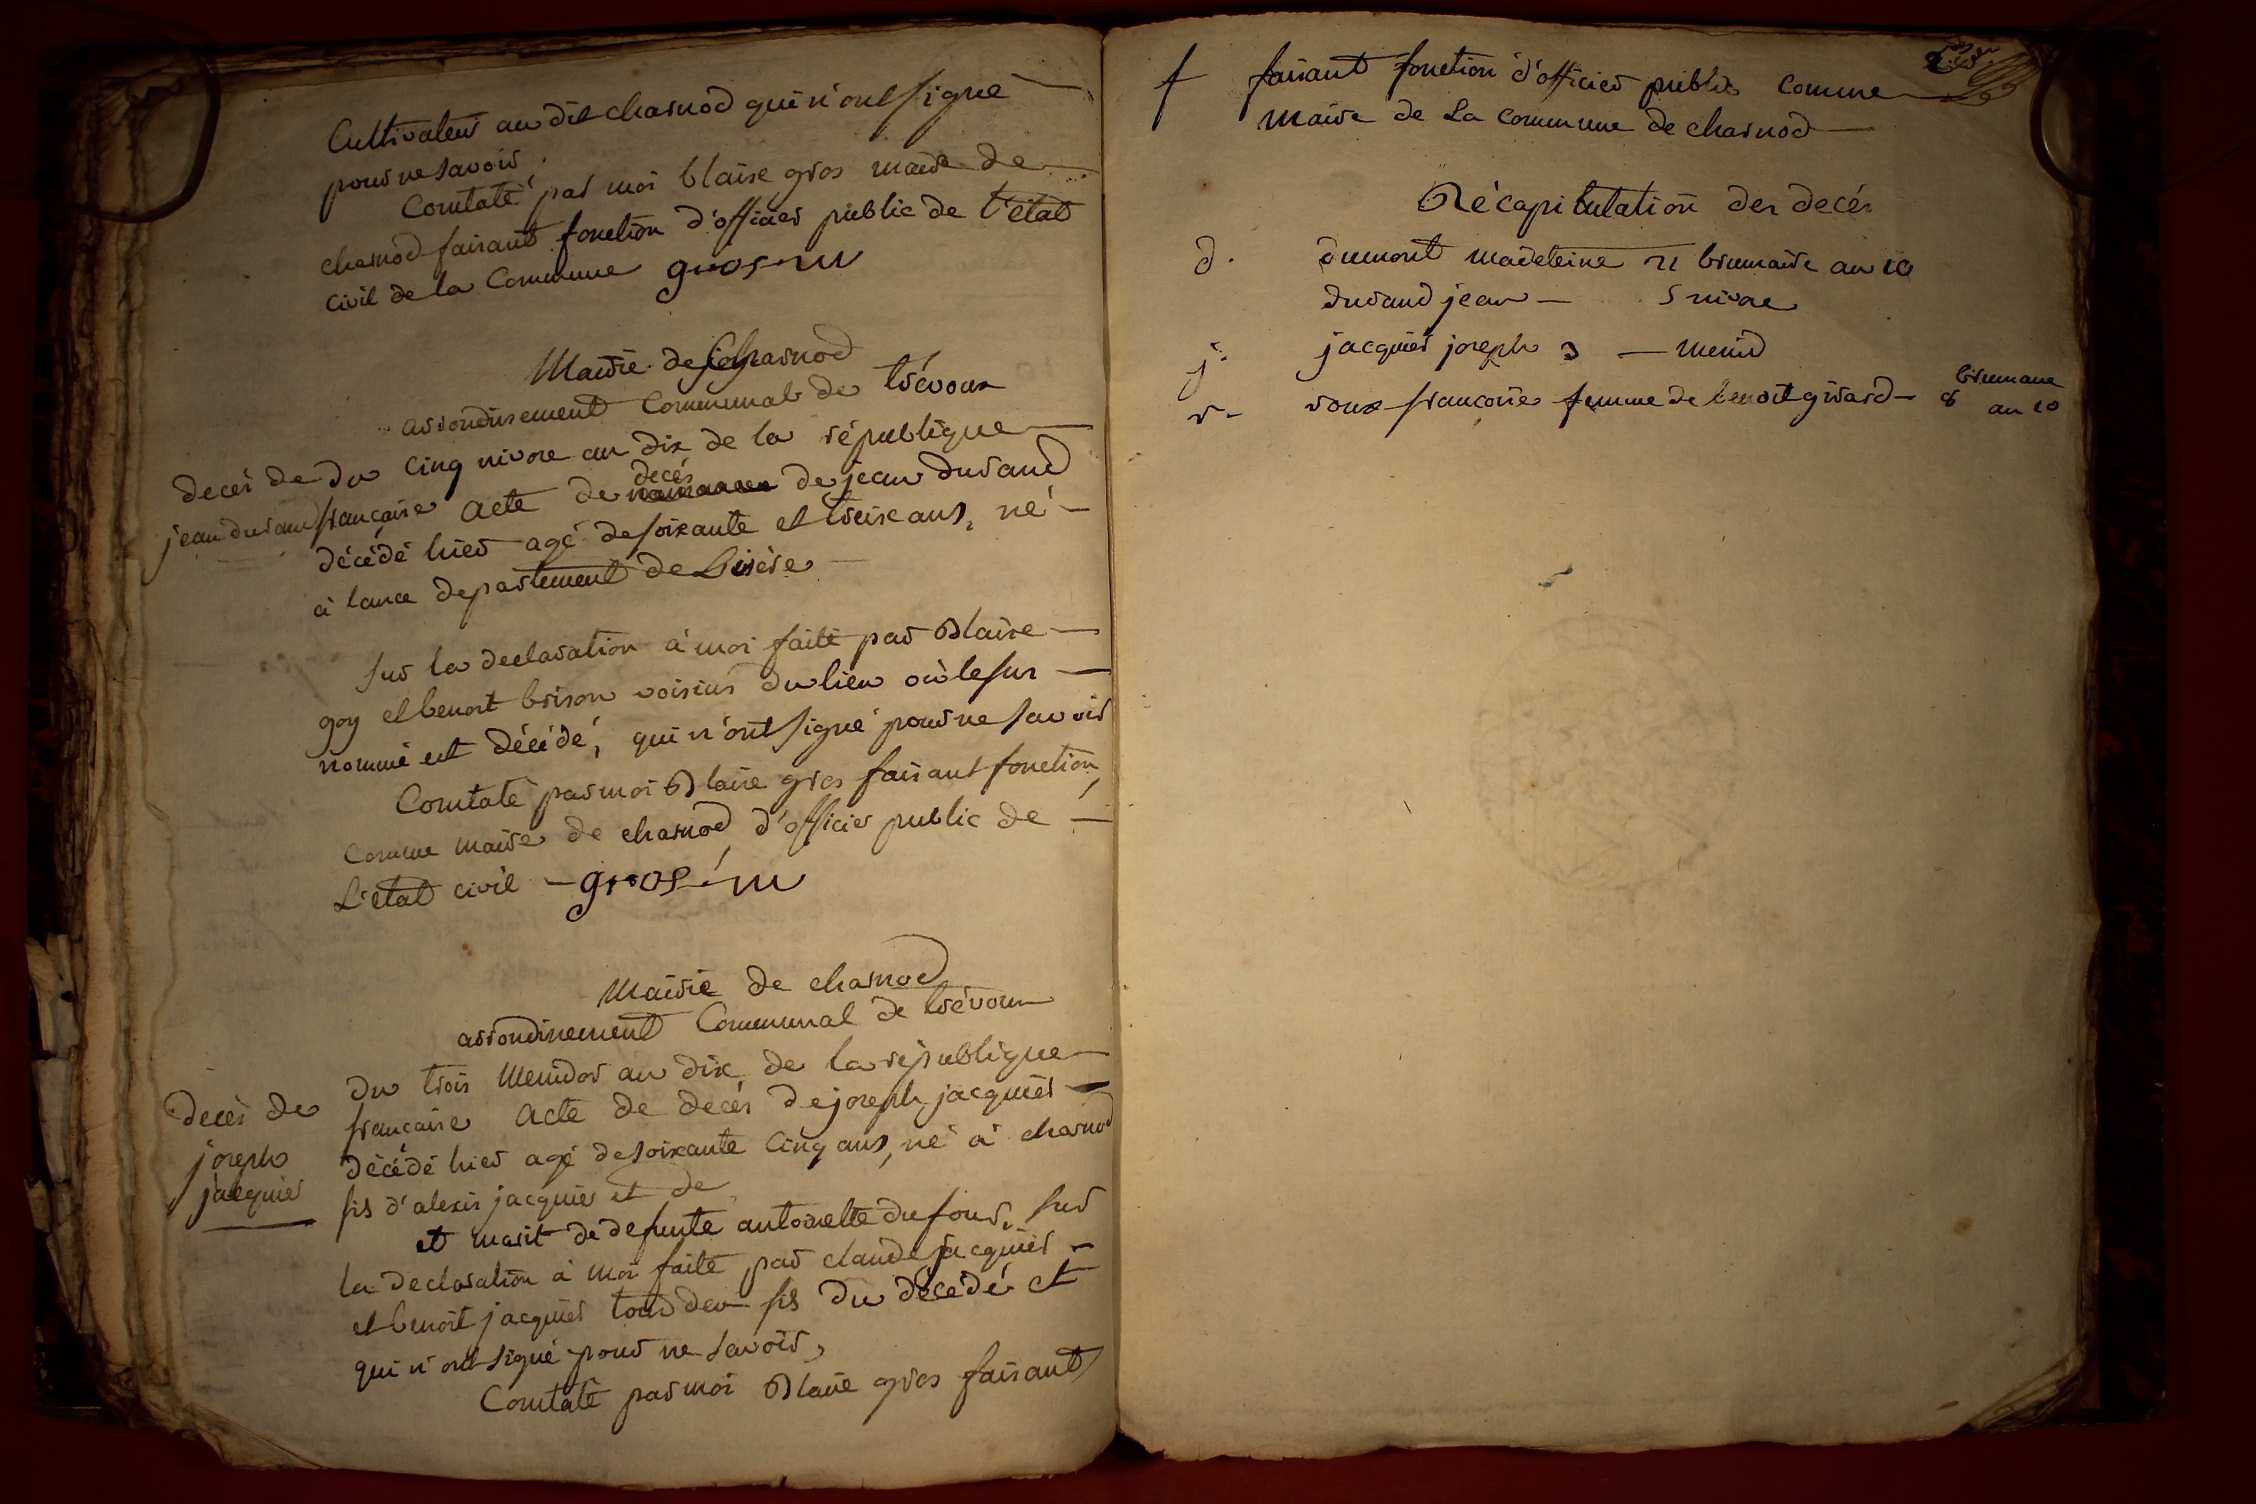 Cultivateur au dit charnod qui n'ont signé
pour ne savoir.
Constaté par moi blaise gros maire de
charnod faisant fonction d'officier public de l'état
civil de la Commune gros m
Mairie de Charnod
arrondissement Communal de trévoux
decès de
jean durand
du cinq nivose an dix de la république
decés
francaise acte de naissance de jean durand
décédé hier agé de soixante et treize ans, né
à lance departement de Lisère
sur la declaration à moi faite par Blaise
goy et benoit brison voisins du lieu où le sus
nommé est décédé, qui n'ont signé pour ne savoir
Constaté par moi Blaise gros faisant fonction
comme maire de charnod d'officier public de
L'état civil gros m
Mairie de charnod
arrondissement Communal de trévoux
decès de
joseph
jacquier
du trois Messidor an dix de la république
francaise acte de decés de joseph jacquier
décédé hier agé de soixante cinq ans, né à charnod
fils d'alexis jacquier et de
et marit de defunte antoinette dufour, sur
la declaration à moi faite par claude jacquier
et benoit jacquier tous deu fils du décédé et
qui n'ont signé pour ne savoir,
Constaté par moi Blaise gros faisant
f faisant fonction d'officier public comme
maire de La commune de charnod
Récapitulation des decés
d. dumont madeleine 21 brumaire an 10
durand jean — 5 nivose
j. jacquier joseph 3 — messid
r. roux francoise femme de benoit girard — 8 brumaire
an 10